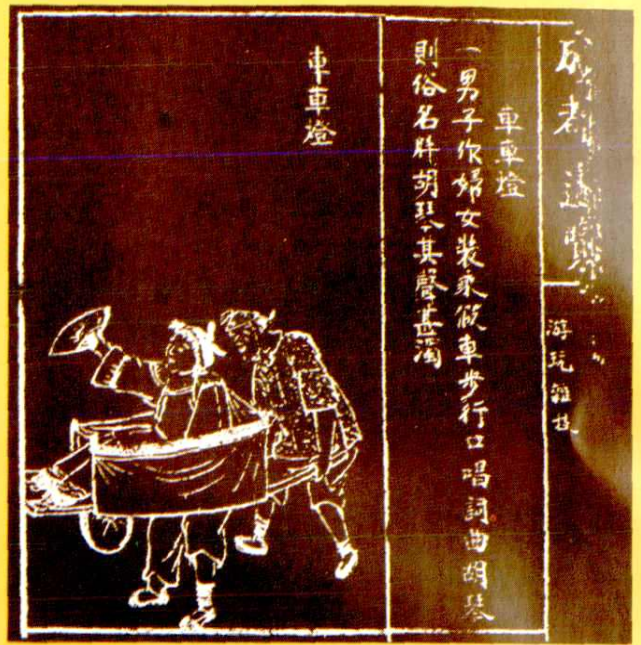 成都通覽
游玩雜技
車車燈
一男子作婦女裝乘假車步行口唱詞曲胡琴
則俗名胖胡琴其聲甚濁
車車燈